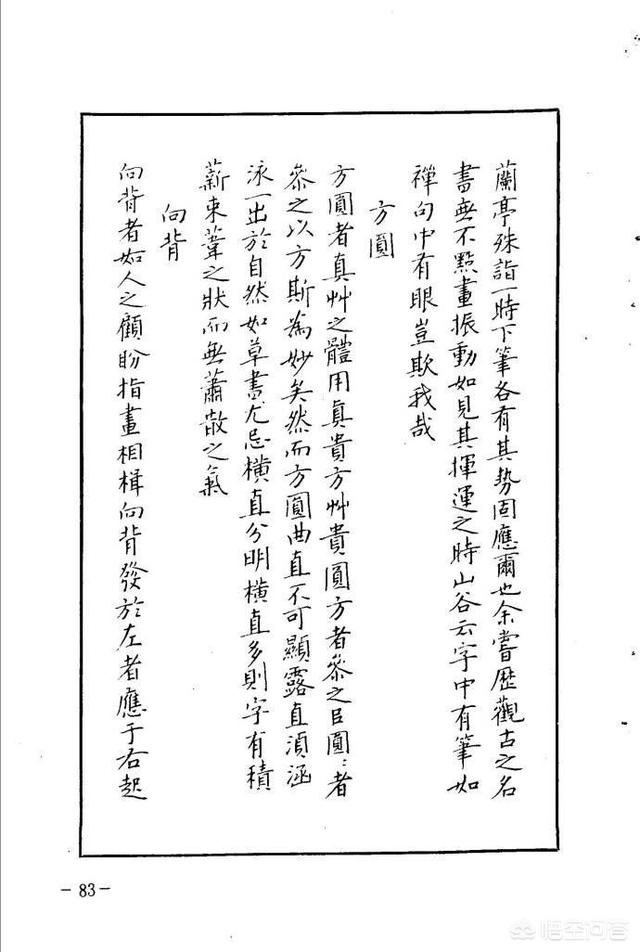 蘭亭殊詣一時下筆各有其勢固應爾也余嘗歷觀古之名
書無不點畫振動如見其揮運之時山谷云字中有筆如
禪句中有眼豈欺我哉
方圓
方圓者真艸之體用真貴方艸貴圓方者叅之㠯圓〻者
叅之以方斯為妙矣然而方圓曲直不可顯露直湏涵
泳一出於自然如草書尤忌橫直分明橫直多則字有積
薪束葦之狀而無蕭散之氣
向背
向背者如人之顧盼指畫相楫向背發於左者應于右起
-83-
悟空问答